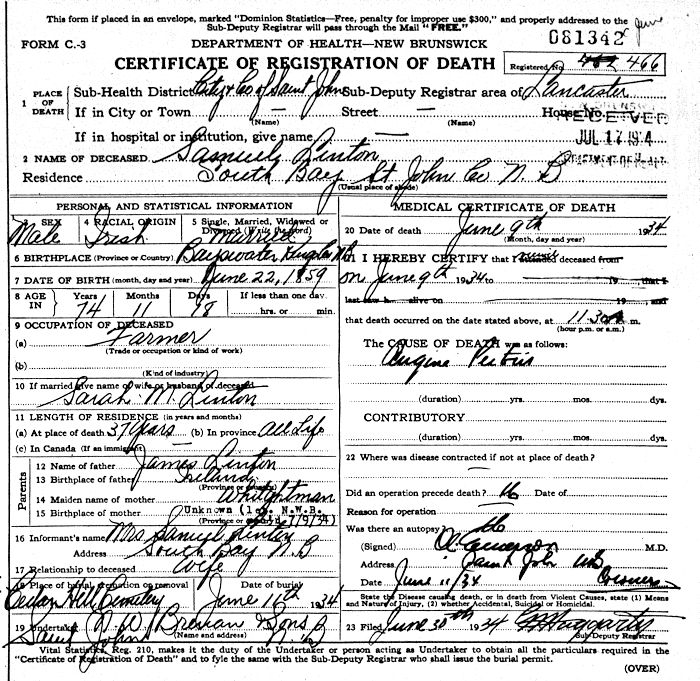 This form if placed in an envelope, marked "Dominion Statistics—Free, penalty for improper use $300," and properly addressed to the
Sub-Deputy Registrar will pass through the Mail "FREE."
June
081342
FORM C.-3
DEPARTMENT OF HEALTH—NEW BRUNSWICK
CERTIFICATE OF REGISTRATION OF DEATH
Registered No. 466
1 PLACE OF DEATH
Sub-Health District City & Co of Saint John Sub-Deputy Registrar area of Lancaster
If in City or Town — Street — House No.
(Name) (Name)
RECEIVED
JUL 17 1934
DEPARTMENT OF HEALTH
If in hospital or institution, give name —
2 NAME OF DECEASED Samuel Linton
Residence South Bay St. John Co N. B
(Usual place of abode)
PERSONAL AND STATISTICAL INFORMATION
3 SEX 4 RACIAL ORIGIN 5 Single, Married, Widowed or Divorced (Write the word)
Male Irish Married
6 BIRTHPLACE (Province or Country) Bayswater Kings Co N B
7 DATE OF BIRTH (month, day and year) June 22, 1859
8 AGE IN Years Months Days If less than one day.
74 11 18 ....hrs. or ....min.
9 OCCUPATION OF DECEASED
(a) Farmer
(Trade or occupation or kind of work)
(b)
(Kind of industry)
10 If married give name of wife or husband of deceased
Sarah M. Linton
11 LENGTH OF RESIDENCE (in years and months)
(a) At place of death 37 years (b) In province All Life
(c) In Canada (If an immigrant) —
Parents
12 Name of father James Linton
13 Birthplace of father Ireland
(Province or country)
14 Maiden name of mother Whightman
15 Birthplace of mother Unknown (1e). N.W.B.
(Province or country) 7/9/34)
16 Informant's name Mrs Samuel Linton
Address South Bay N B
17 Relationship to deceased Wife
18 Place of burial, cremation or removal Date of burial
Cedar Hill Cemetery June 11th 1934
19 Undertaker N. W. Brenan & Sons
(Name and address)
Saint John N. B.
MEDICAL CERTIFICATE OF DEATH
20 Date of death June 9th 1934
(Month, day and year)
21 I HEREBY CERTIFY that I attended deceased from
on June 9th 1934 to 19 , that I
last saw h alive on 19 , and
that death occurred on the date stated above, at 11.30 A m.
(hour p.m. or a.m.)
The CAUSE OF DEATH was as follows:
Angina Pectoris
(duration) yrs. mos. dys.
CONTRIBUTORY
(duration) yrs. mos. dys.
22 Where was disease contracted if not at place of death?
—
Did an operation precede death? No Date of
Reason for operation —
Was there an autopsy? No
(Signed) M.D.
Address Saint John NB
Date June 11/34 Coroner
State the Disease causing death, or in death from Violent Causes, state (1) Means
and Nature of Injury, (2) whether Accidental, Suicidal or Homicidal.
23 Filed June 30th 1934
Sub-Deputy Registrar
Vital Statistics, Reg. 210, makes it the duty of the Undertaker or person acting as Undertaker to obtain all the particulars required in the
"Certificate of Registration of Death" and to fyle the same with the Sub-Deputy Registrar who shall issue the burial permit.
(OVER)